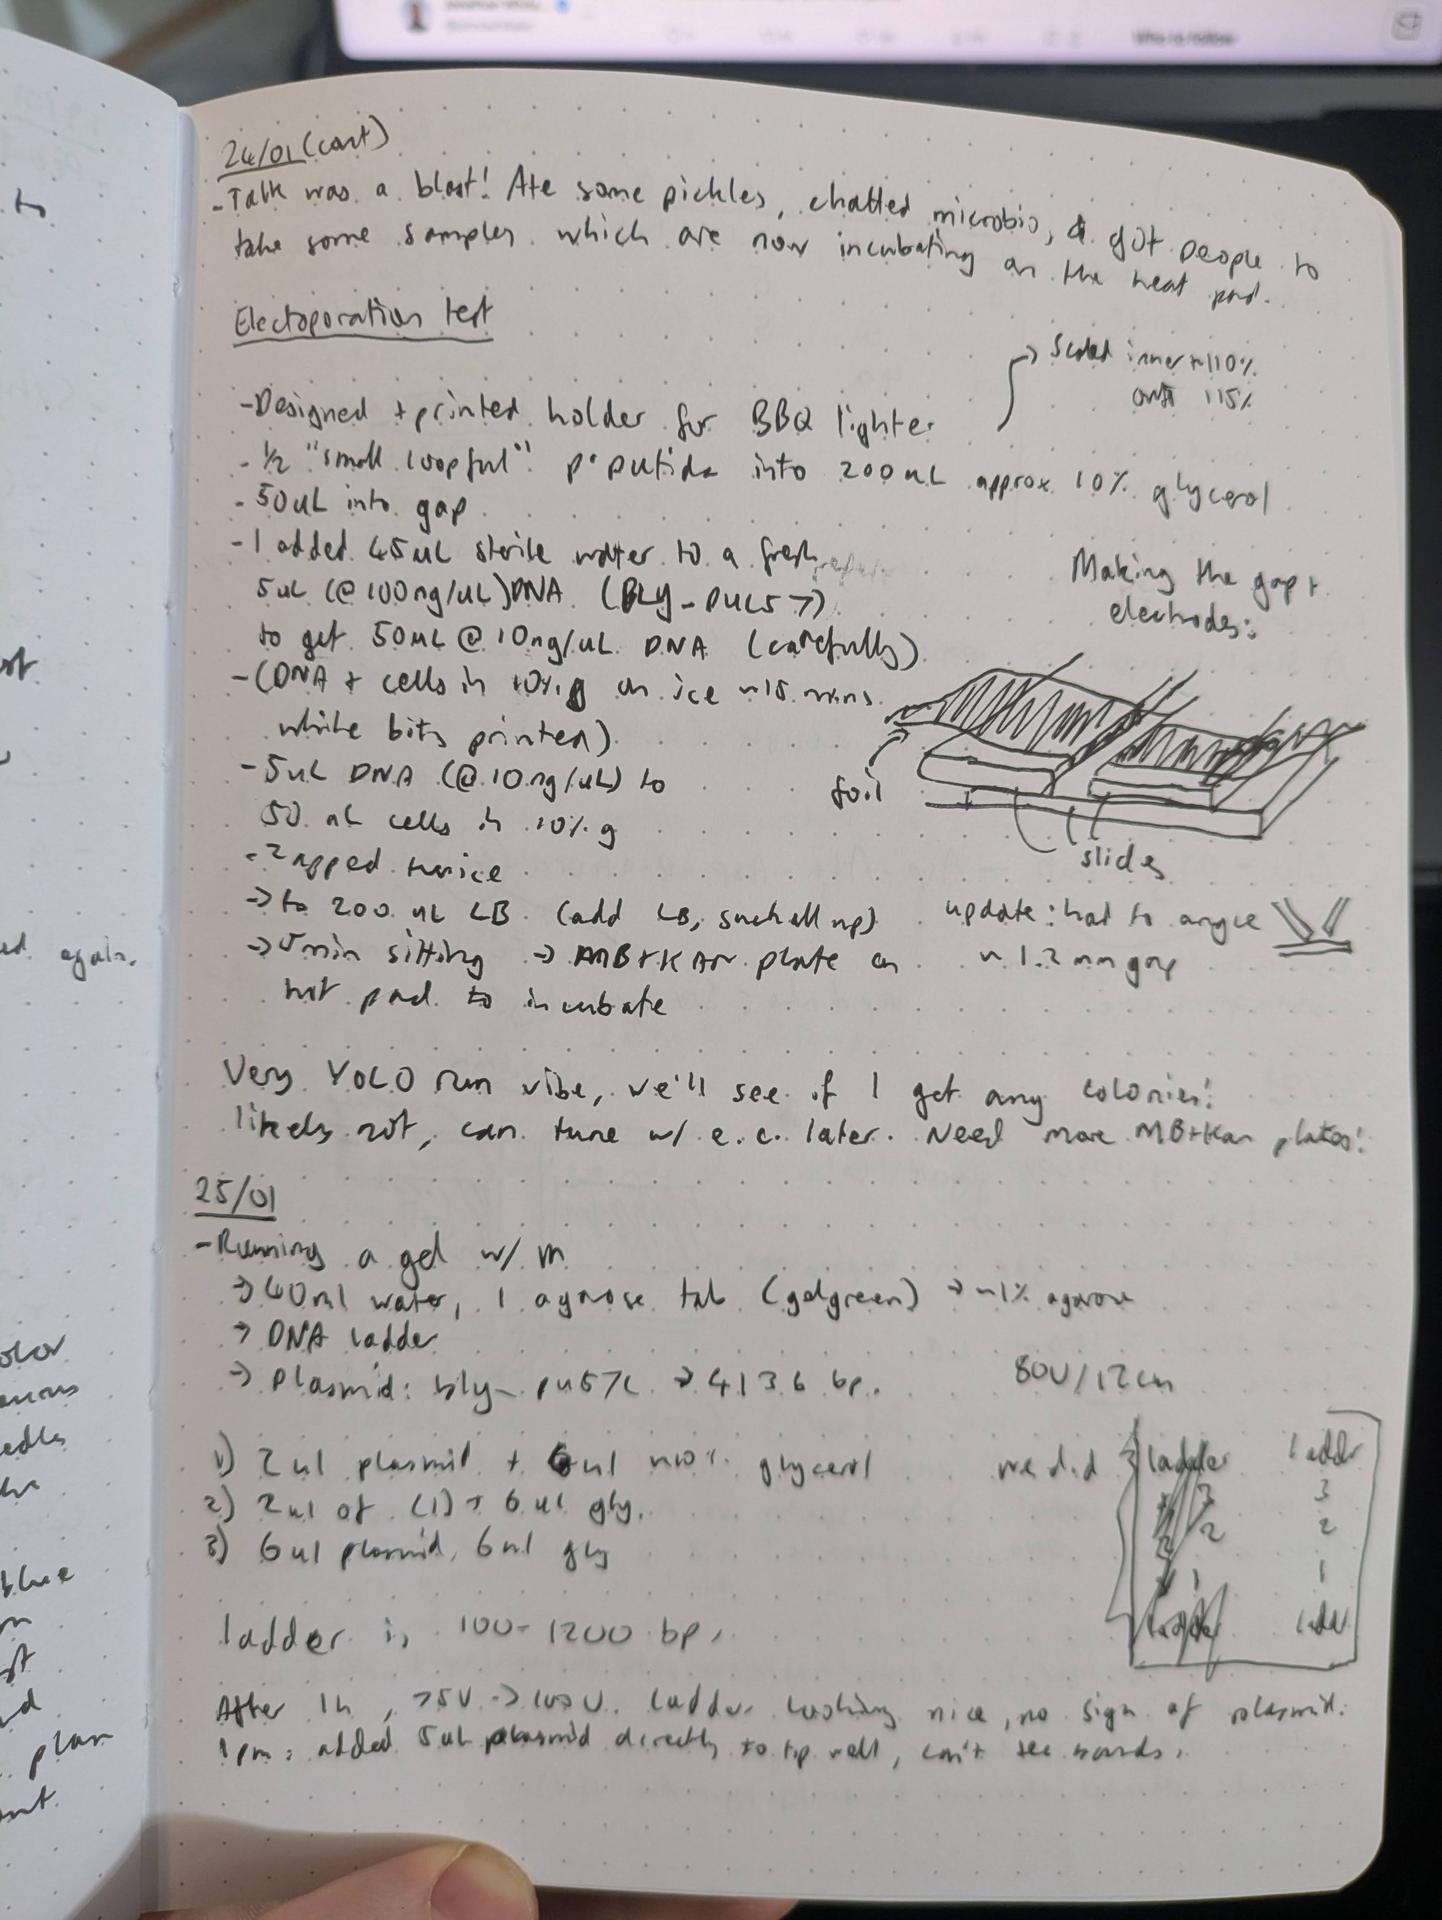 24/01 (cont)
- Talk was a blast! Ate some pickles, chatted microbio, & got people to
take some samples which are now incubating on the heat pad.
Electoporation test
→ Scaled inner ~110%
outer 115%
- Designed + printed holder for BBQ lighter
- 1/2 "small loopful" p. putida into 200uL approx 10% glycerol
- 50uL into gap
- I added 45uL sterile water to a fresh
5uL (@100ng/uL) DNA
to get 50uL @ 10ng/uL DNA (carefully)
- (DNA + cells in 10% g on ice ~15 mins
while bits printed)
- 5uL DNA (@ 10ng/uL) to
50 uL cells in 10% g
- Zapped twice
→ to 200 uL LB (add LB, suck all up)
→ 5min sitting → plate on
hot pad to incubate
Making the gap +
electrodes:
foil
slides
update: had to angle
~ 1.2mm gap
Very YOLO run vibe, we'll see if I get any colonies!
likely not, can tune w/ e.c. later. Need more MB+Kan plates!
25/01
- Running a gel w/ m
→ 40ml water, 1 agarose tab (gelgreen) → ~1% agarose
→ DNA ladder
→ Plasmid: → 4136 bp.
80V/12cm
1) 2ul plasmid + 6ul ~10% glycerol
2) 2ul of (1) + 6ul gly.
3) 6ul plasmid, 6ul gly
we did
ladder ladder
3 3
2 2
1 1
ladder ladder
ladder is 100-1200 bp.
After 1h, 75V → 100V. Ladder looking nice, no sign of plasmid.
1pm: added 5uL plasmid directly to top well, can't see bands.